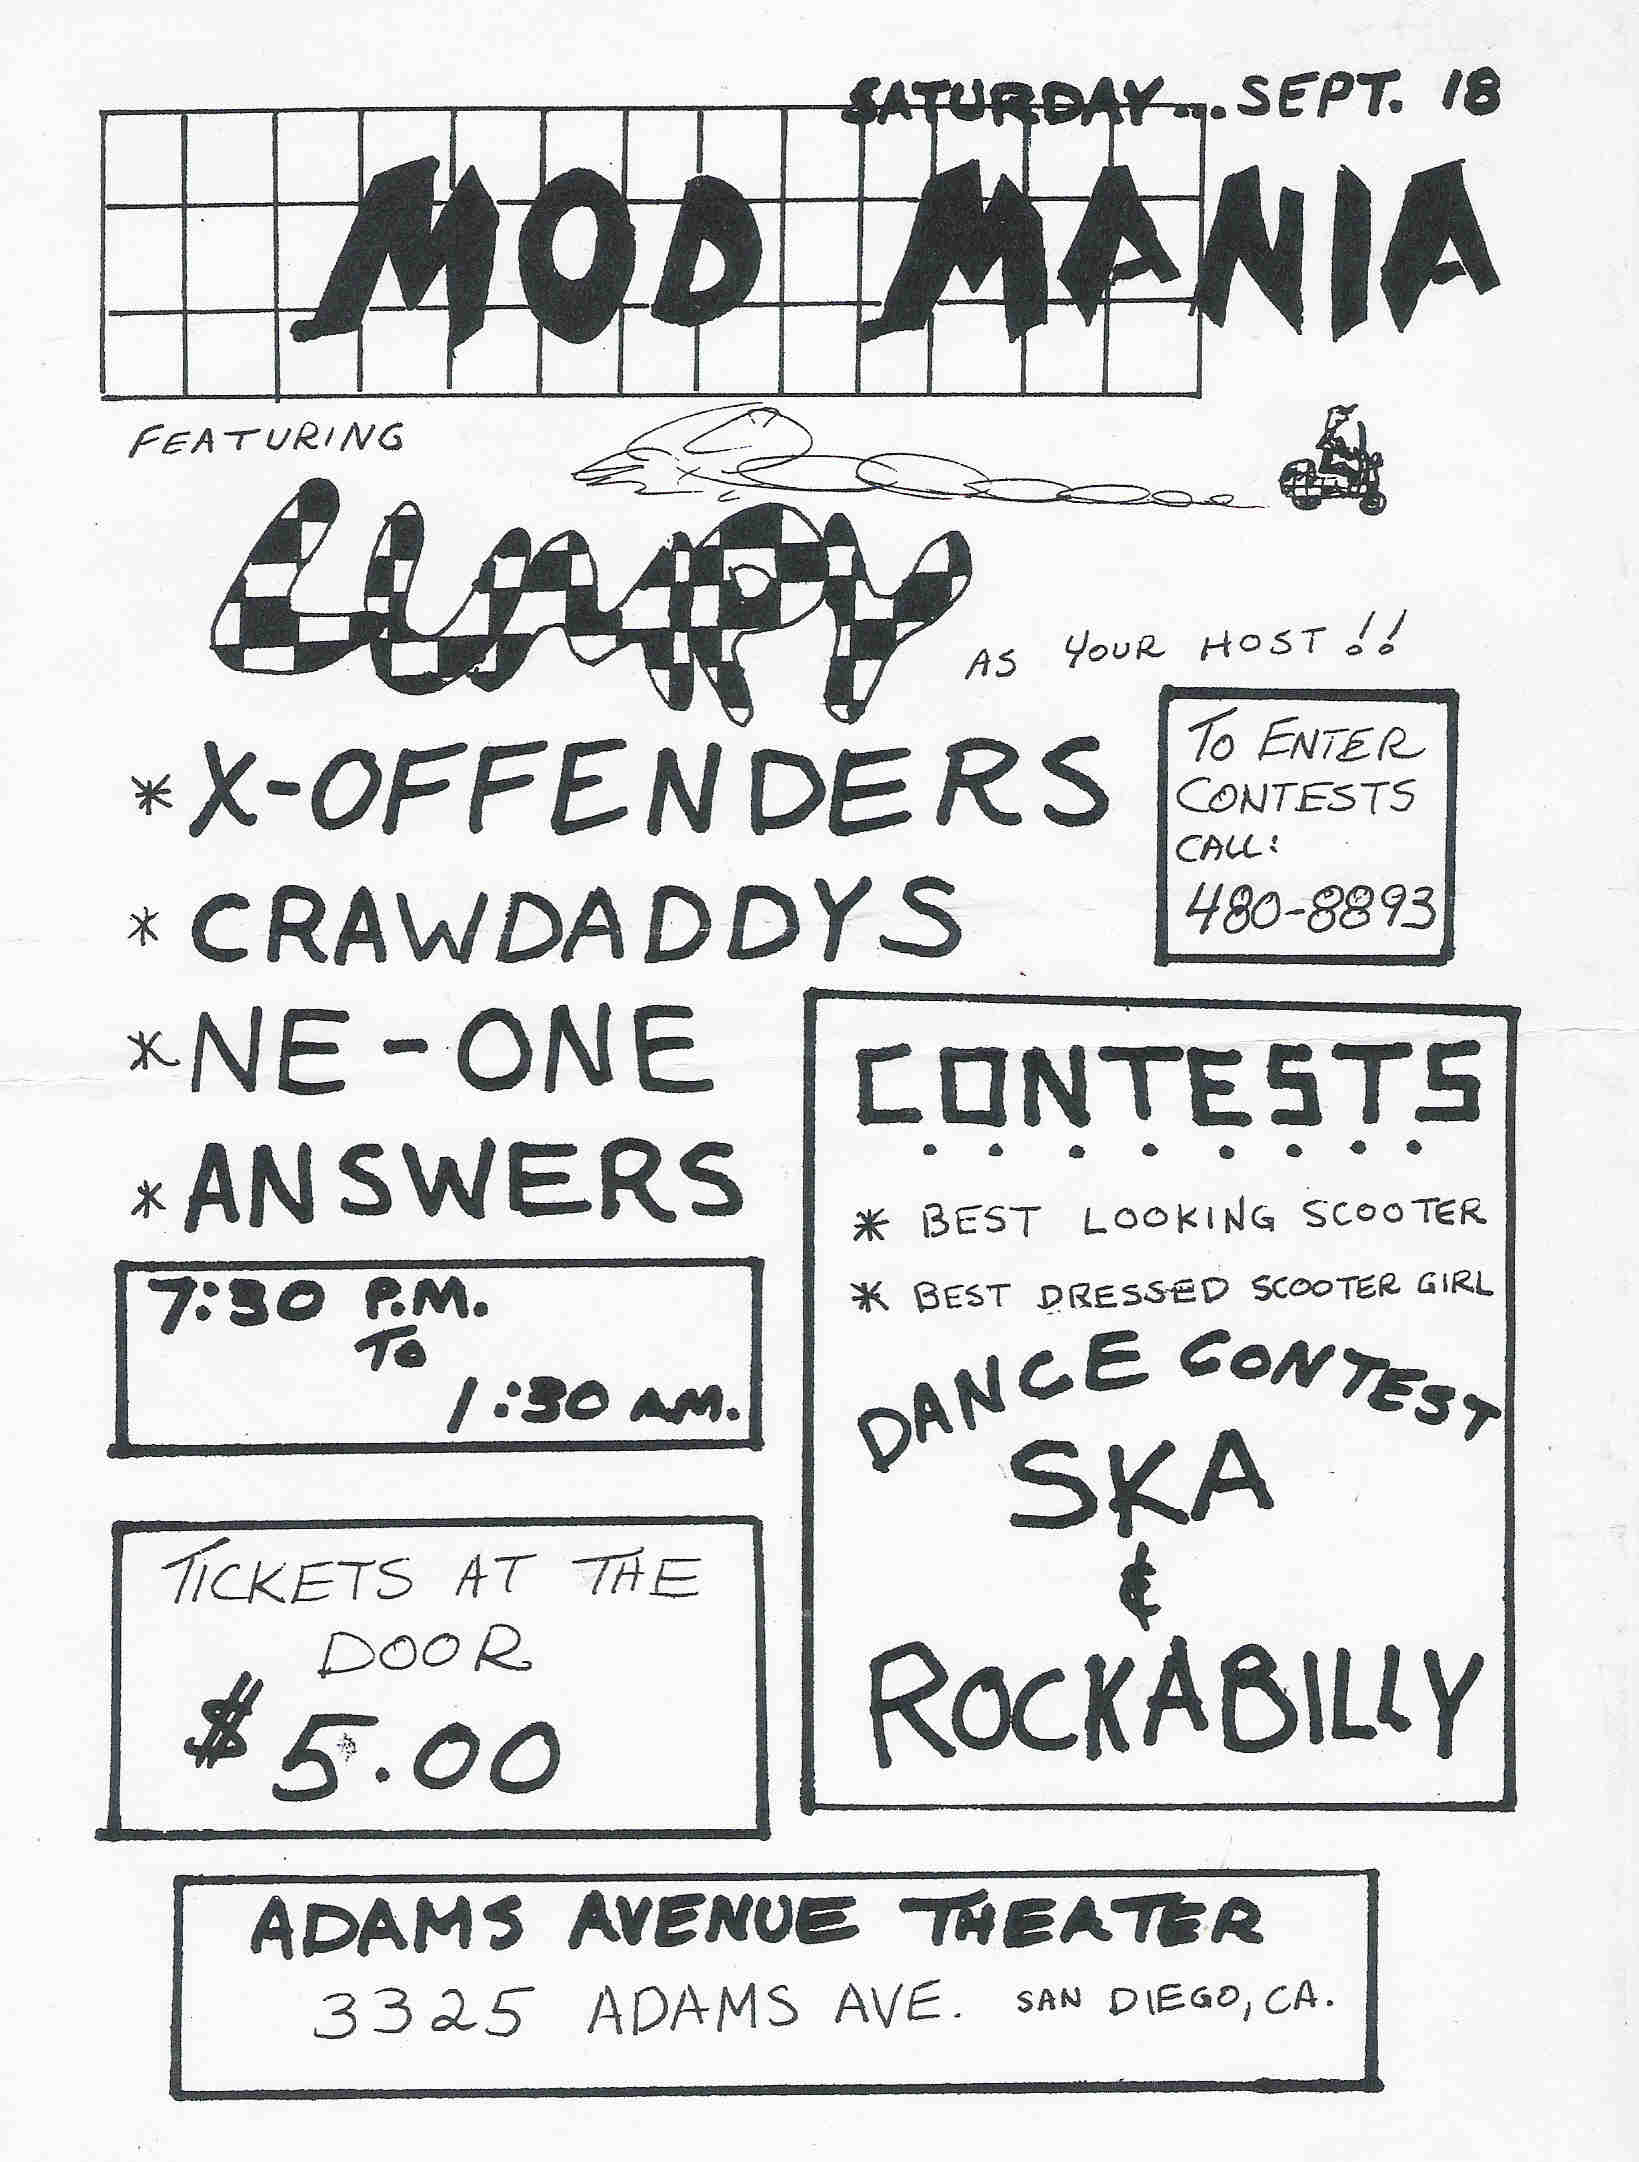 SATURDAY... SEPT. 18
MOD MANIA
FEATURING
LUMPY
AS YOUR HOST!!
* X-OFFENDERS
* CRAWDADDYS
* NE-ONE
* ANSWERS
TO ENTER
CONTESTS
CALL:
480-8893
CONTESTS
* BEST LOOKING SCOOTER
* BEST DRESSED SCOOTER GIRL
DANCE CONTEST
SKA
&
ROCKABILLY
7:30 P.M.
TO
1:30 AM.
TICKETS AT THE
DOOR
$5.00
ADAMS AVENUE THEATER
3325 ADAMS AVE. SAN DIEGO, CA.